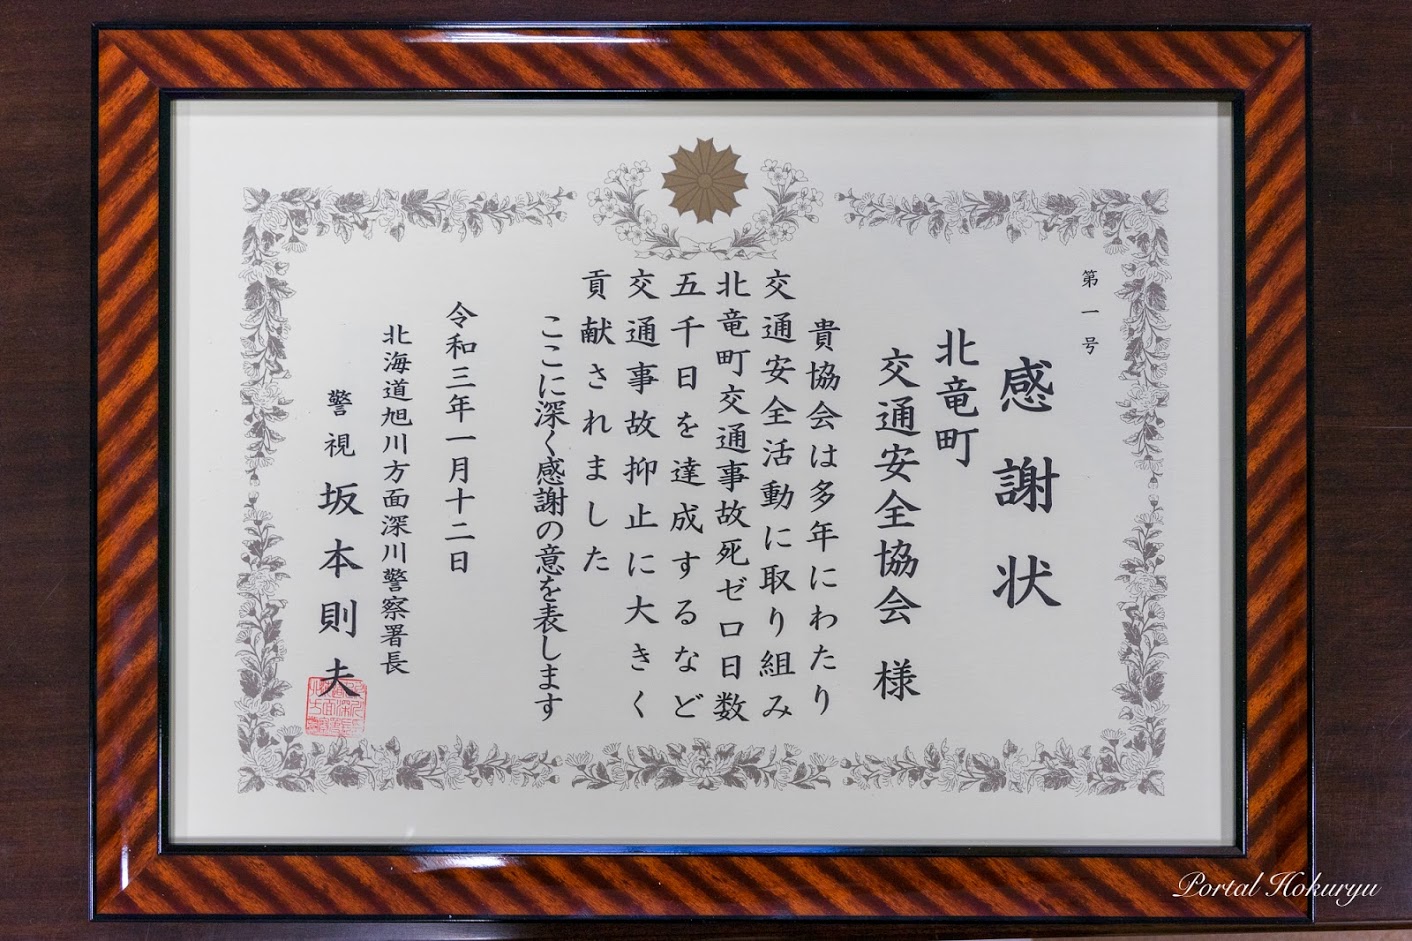 第一号
感謝状
北竜町
交通安全協会 様
貴協会は多年にわたり
交通安全活動に取り組み
北竜町交通事故死ゼロ日数
五千日を達成するなど
交通事故抑止に大きく
貢献されました
ここに深く感謝の意を表します
令和三年一月十二日
北海道旭川方面深川警察署長
警視 坂本則夫
Portal Hokuryu